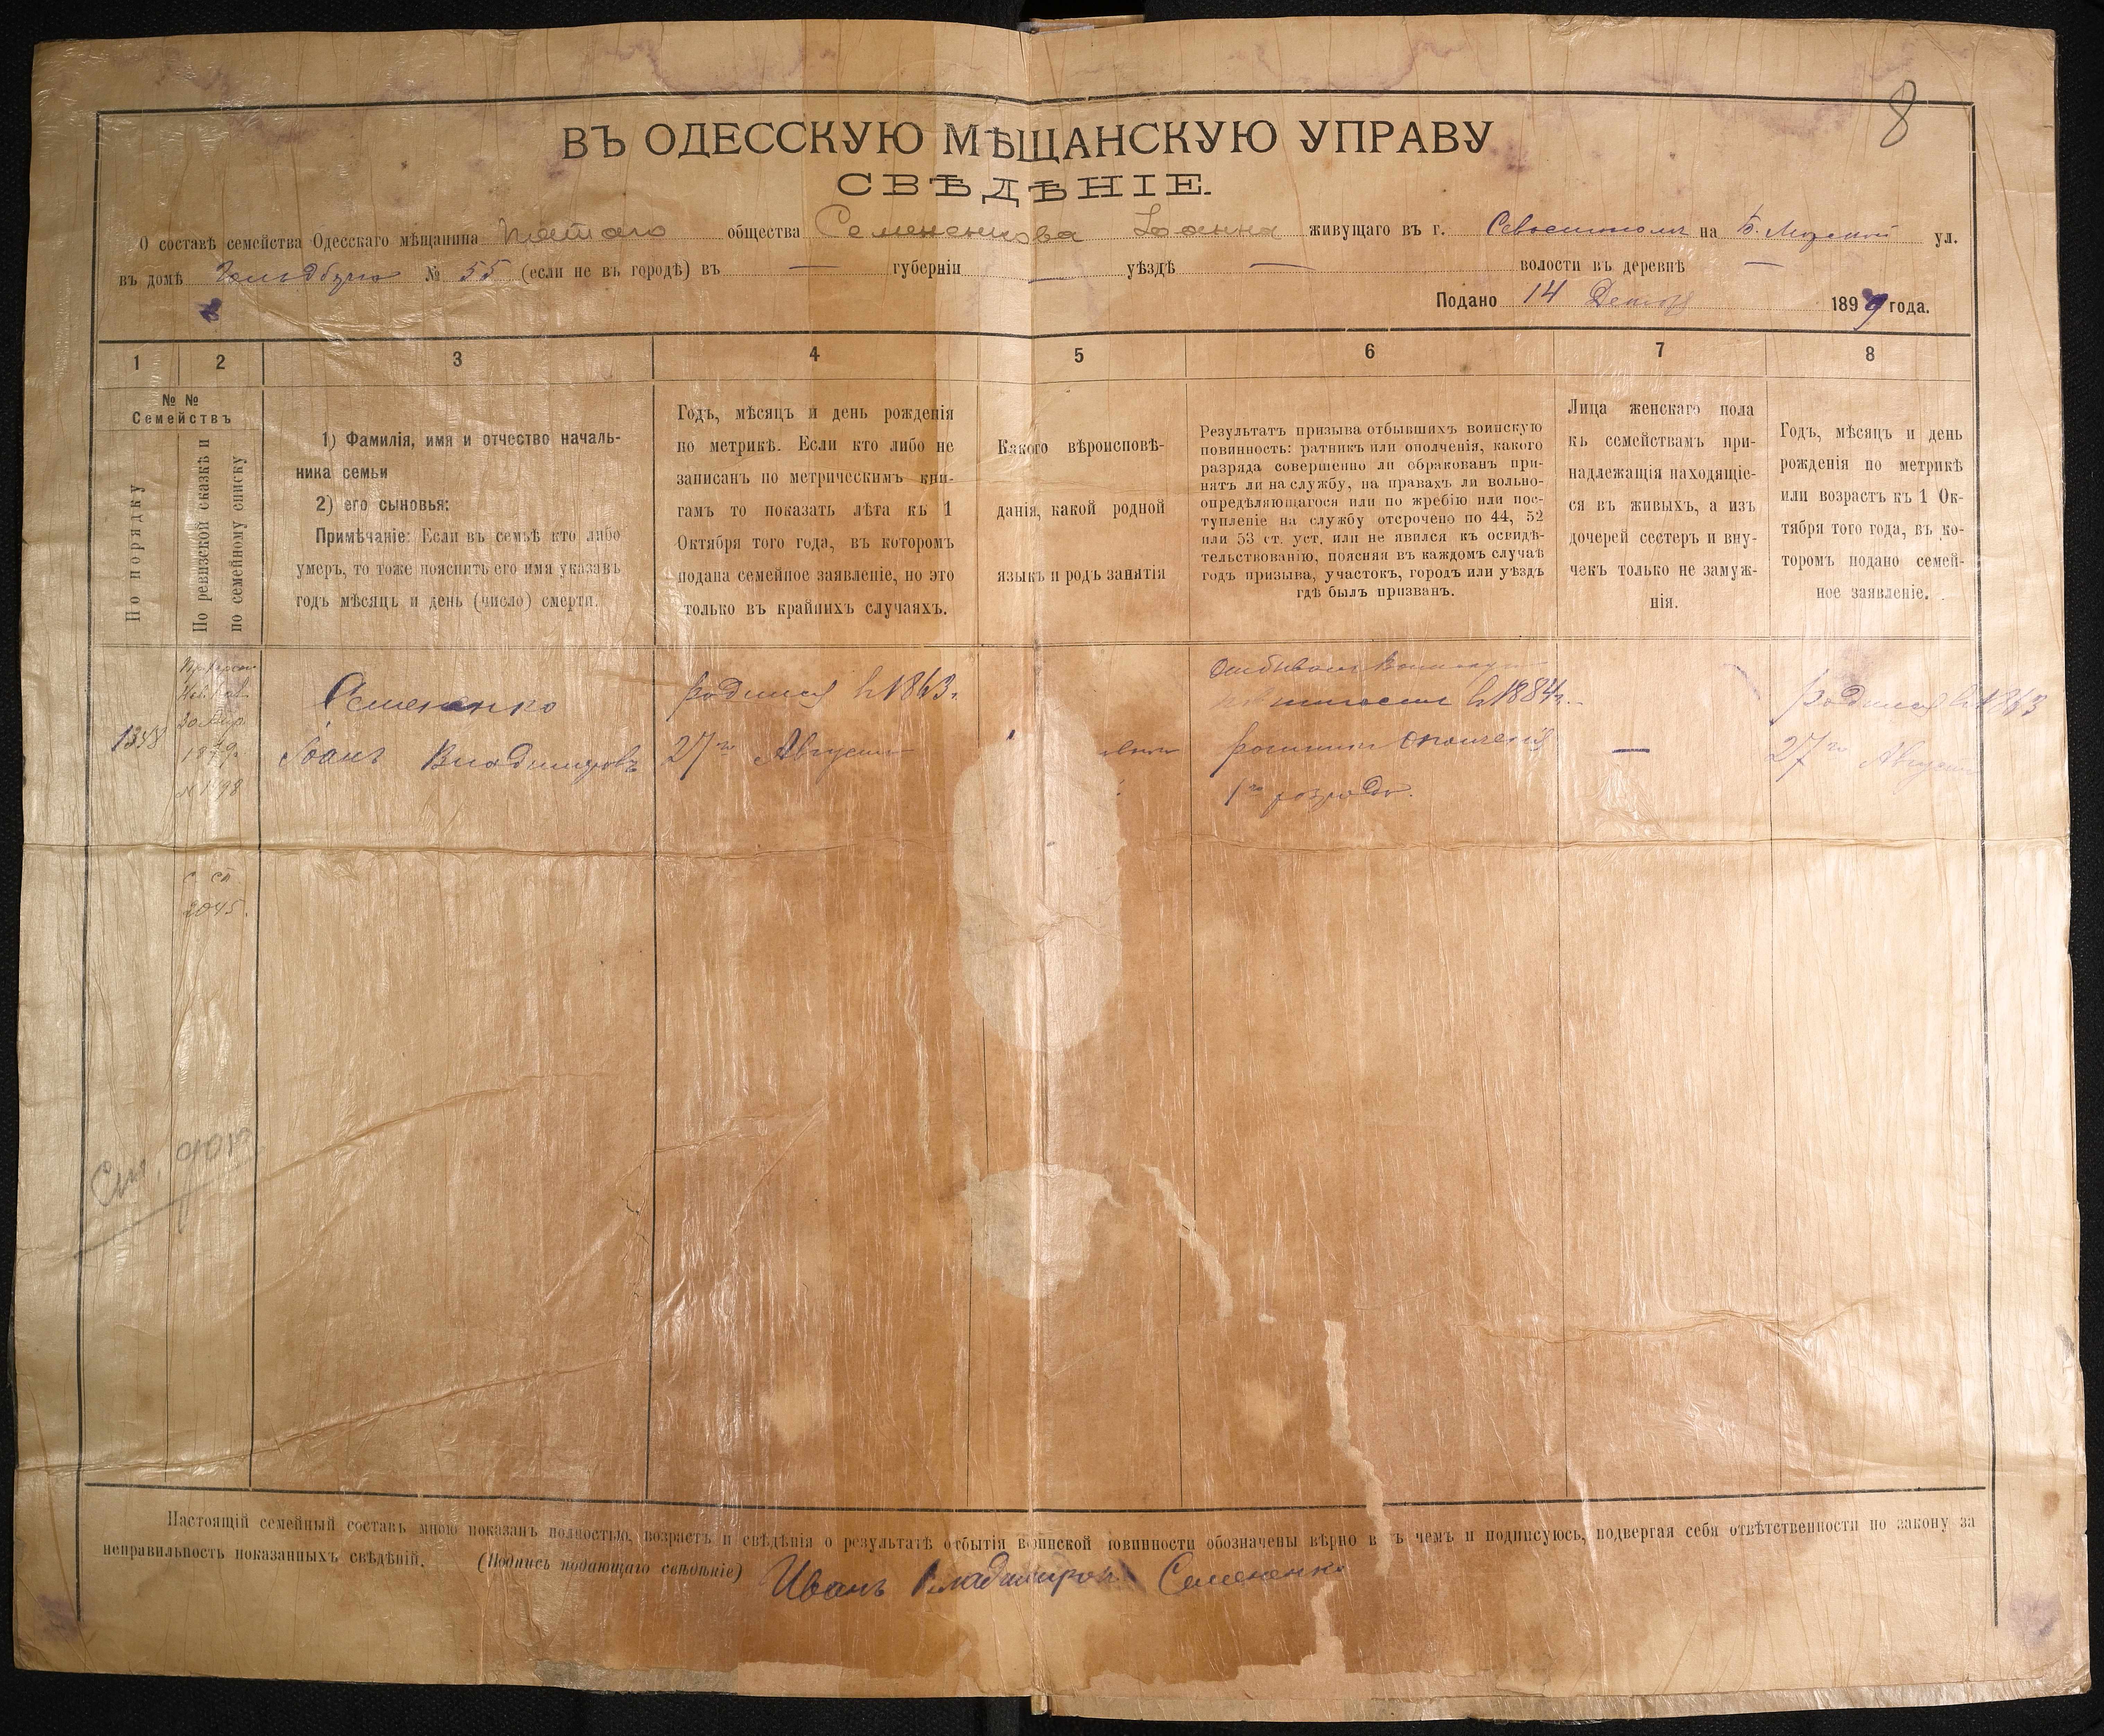 8
ВЪ ОДЕССКУЮ МѢЩАНСКУЮ УПРАВУ
СВѢДѢНІЕ.
О составѣ семейства Одесскаго мѣщанина пятаго общества Семененкова Іоанна живущаго въ г. Севастополѣ на Б. Морской ул.
въ домѣ № 55 (если не въ городѣ) въ — губерніи — уѣздѣ — волости въ деревнѣ —
Подано 14 1899 года.
1 2 3 4 5 6 7 8
№ №
Семействъ
По порядку
По ревизской сказкѣ и
по семейному списку
1) Фамилія, имя и отчество началь-
ника семьи
2) его сыновья:
Примѣчаніе: Если въ семьѣ кто либо
умеръ, то тоже пояснить его имя указавъ
годъ мѣсяцъ и день (число) смерти.
Годъ, мѣсяцъ и день рожденія
по метрикѣ. Если кто либо не
записанъ по метрическимъ кни-
гамъ то показать лѣта къ 1
Октября того года, въ которомъ
подана семейное заявленіе, но это
только въ крайнихъ случаяхъ.
Какого вѣроисповѣ-
данія, какой родной
языкъ и родъ занятія
Результатъ призыва отбывшихъ воинскую
повинность: ратникъ или ополченія, какого
разряда совершенно ли обракованъ при-
нятъ ли на службу, на правахъ ли вольно-
опредѣляющагося или по жребію или пос-
тупленіе на службу отсрочено по 44, 52
или 53 ст. уст. или не явился къ освидѣ-
тельствованію, поясняя въ каждомъ случаѣ
годъ призыва, участокъ, городъ или уѣздъ
гдѣ былъ призванъ.
Лица женскаго пола
къ семействамъ при-
надлежащія находящіе-
ся въ живыхъ, а изъ
дочерей сестеръ и вну-
чекъ только не замуж-
нія.
Годъ, мѣсяцъ и день
рожденія по метрикѣ
или возрастъ къ 1 Ок-
тября того года, въ ко-
торомъ подано семей-
ное заявленіе.
1358
Семененко
Іоанъ Владимировъ
родился в 1863 г.
27го Августа
Отбывалъ Воинскую
повинность в 1884 г.
ратникъ Ополченія
1го разряда.
—
родился в 1863
27го Августа
с. сп.
2045.
См.
Настоящій семейный составъ мною показанъ полностью, возрастъ и свѣдѣнія о результатѣ отбытія воинской повинности обозначены вѣрно въ чемъ и подписуюсь, подвергая себя отвѣтственности по закону за
неправильность показанныхъ свѣдѣній. (Подпись подающаго свѣдѣніе) Иванъ Владимировъ Семененко